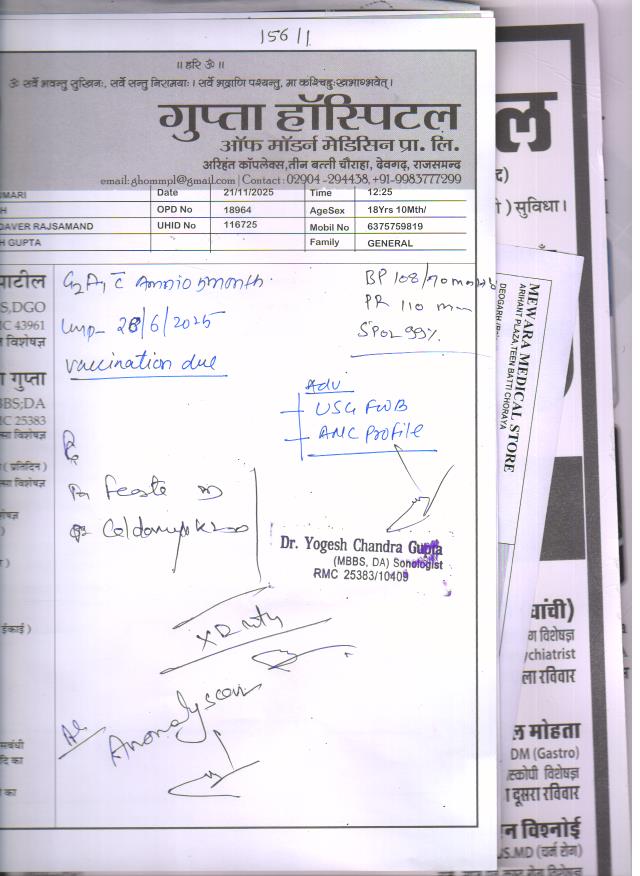 15611
॥ हरि ॐ ॥
ॐ सर्वे भवन्तु सुखिनः, सर्वे सन्तु निरामयाः । सर्वे भद्राणि पश्यन्तु, मा कश्चिद्दुःखभाग्भवेत् ।
गुप्ता हॉस्पिटल
ऑफ मॉडर्न मेडिसिन प्रा. लि.
अरिहंत कॉपलेक्स,तीन बत्ती चौराहा, देवगढ़, राजसमन्द
email: ghommpl@gmail.com | Contact : 02904 -294438, +91-9983777299
UMARI Date 21/11/2025 Time 12:25
H OPD No 18964 AgeSex 18Yrs 10Mth/
DAVER RAJSAMAND UHID No 116725 Mobil No 6375759819
H GUPTA Family GENERAL
पाटील
S,DGO
MC 43961
विशेषज्ञ
गुप्ता
BBS;DA
MC 25383
विशेषज्ञ
( प्रतिदिन )
विशेषज्ञ
ईकाई )
सबंधी
दि का
का
5 month
BP 108/70
LMP- 28/6/2025
PR 110
SPO2 99%
vaccination due
Adv
USG FWB
ANC Profile
Dr. Yogesh Chandra Gupta
(MBBS, DA) Sonologist
RMC 25383/10409
Anomaly scan
ल
) सुविधा।
MEWARA MEDICAL STORE
ARIHANT PLAZA,TEEN BATTI CHORAYA
रांची)
ग विशेषज्ञ
ychiatrist
ला रविवार
ल मोहता
DM (Gastro)
स्कोपी विशेषज्ञ
दूसरा रविवार
न विश्नोई
S.MD (चर्म रोग)